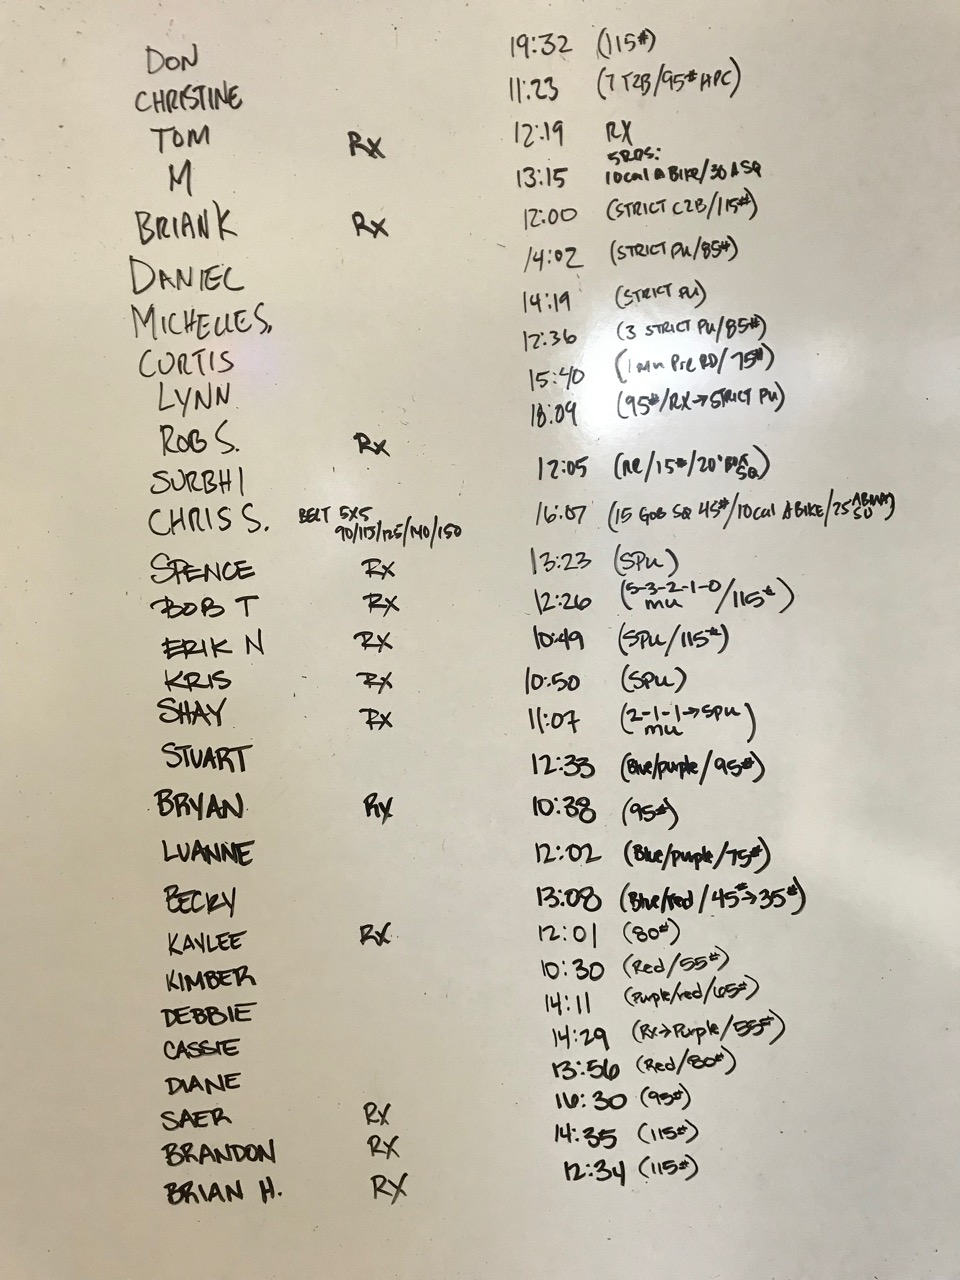 DON 19:32 (115#)
CHRISTINE 11:23 (7 T2B/95# HPC)
TOM Rx 12:19 RX
M 13:15 5RDS: 10cal A Bike/30 A SQ
BRIAN K Rx 12:00 (STRICT C2B/115#)
DANIEL 14:02 (STRICT PU/85#)
MICHELLE S. 14:19 (STRICT PU)
CURTIS 12:36 (3 STRICT PU/85#)
LYNN 15:40 (1 mu Per RD/75#)
ROB S. Rx 18:09 (95#/RX→STRICT PU)
SURBHI 12:05 (RR/15#/20" BOX SQ)
CHRIS S. BELT 5X5 90/115/125/140/150 16:07 (15 GOB SQ 45#/10cal A BIKE/25 ABMAT SU)
SPENCE Rx 13:23 (SPU)
BOB T Rx 12:26 (5-3-2-1-0 mu/115#)
ERIK N Rx 10:49 (SPU/115#)
KRIS Rx 10:50 (SPU)
SHAY Rx 11:07 (2-1-1→SPU mu)
STUART 12:33 (Blue/purple/95#)
BRYAN Rx 10:38 (95#)
LUANNE 12:02 (Blue/purple/75#)
BECKY 13:08 (Blue/red/45#→35#)
KAYLEE Rx 12:01 (80#)
KIMBER 10:30 (Red/55#)
DEBBIE 14:11 (Purple/red/65#)
CASSIE 14:29 (Rx→Purple/55#)
DIANE 13:56 (Red/80#)
SAER Rx 16:30 (95#)
BRANDON Rx 14:35 (115#)
BRIAN H. RX 12:34 (115#)